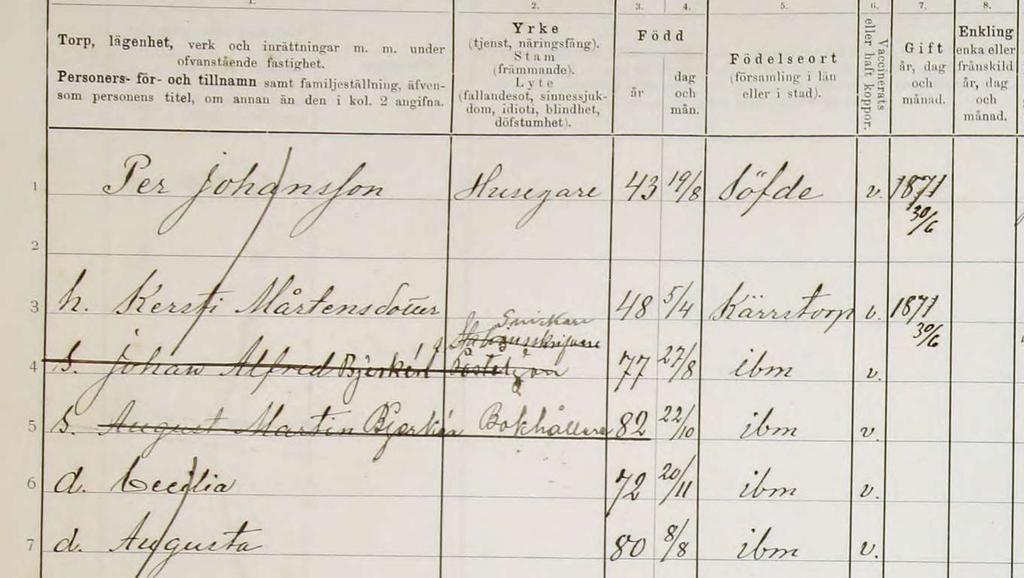 1. 2. 3. 4. 5. 6. 7. 8.
Torp, lägenhet, verk och inrättningar m. m. under
ofvanstående fastighet.
Personers- för- och tillnamn samt familjeställning, äfven-
som personens titel, om annan än den i kol. 2 angifna.
Yrke
(tjenst, näringsfång).
Stam
(främmande).
Lyte
(fallandesot, sinnessjuk-
dom, idioti, blindhet,
döfstumhet).
Född
år
dag
och
mån.
Födelseort
(församling i län
eller i stad).
Vaccinerats
eller haft koppor.
Gift
år, dag
och
månad.
Enkling
enka eller
frånskild
år, dag
och
månad.
1 Per Johansson Husegare 43 19/8 Söfde v. 1871
30/6
2
3 h. Kersti Mårtensdotter 48 5/4 Kärrstorp v. 1871
30/6
Snickare
4 s. Johan Alfred Bjerkén 77 27/8 ibm v.
5 s. August Martin Bjerkén Bokhållare 82 22/10 ibm v.
6 d. Cecilia 72 20/11 ibm v.
7 d. Augusta 80 8/8 ibm v.